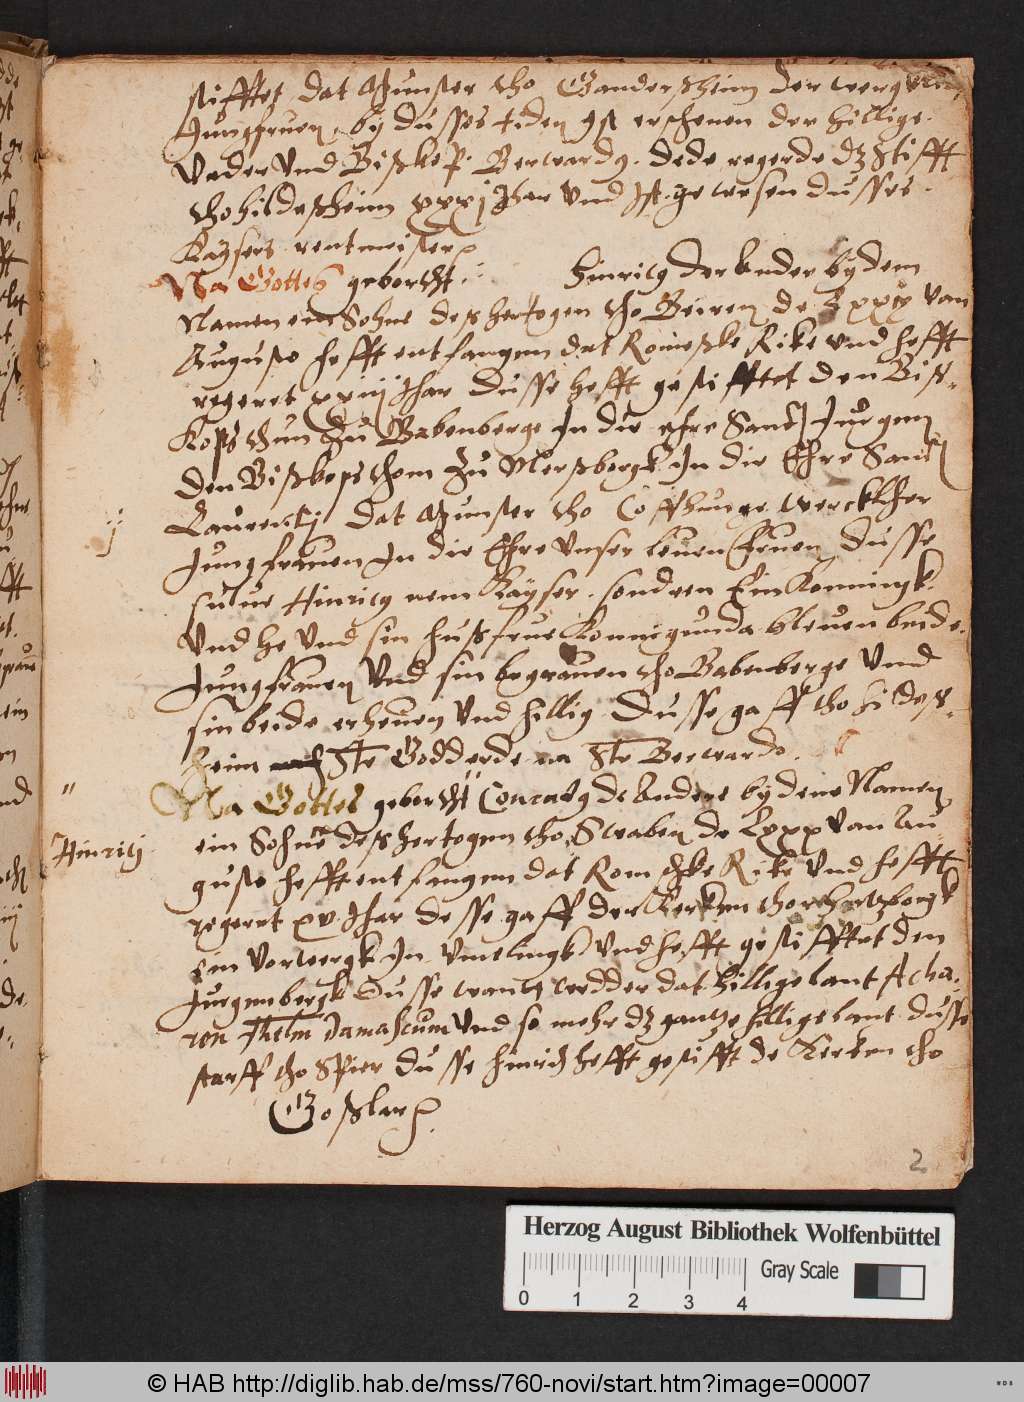 stifftet dat Munster tho Gandersheim der
Jungfruen, by dusses tiden Jst erschenen der hillige
Vader Vnd Bißkop. Berward9. dede regerde dz Stifft
tho hildeßheim xxxj Jhar Vnd Jst gewesen dusses
Kaysers rentmeister
Na Gottes geborth. Hinric9 der ander by dem
Namen ein Sohne deß hertogen tho Beiren de Lxxix van
Augusto hefft entfangen dat Romeske Rike vnd hefft
regeret xxiiij Jhar Dusse hefft gestifftet den Biß-
Kopsthum Zu Babenberge In die ehre Sanct Jurgen
den Bißkopsthom Zu Merßborgk In die Ehre Sanct
Laurentij Dat Munster tho Coffhunge
jj
Jungfrauen In die Ehre Vnser leuen fruen Dusse
sulue Hinric9 nem Kayser. sondern Ein Konningk
Vnd he Vnd sin hußfrue Konnegunda bleuen beide
Jungfrauen Vnd sin begrauen tho Babenberge Vnd
sin beide erheuen Vnd hillig Dusse gaff tho hildeß-
heim Ste Godderde na Ste Berwardo.
"
Na Gottes geborth Conrad9 de andere by dem Namen
Hinricj
ein Sohne deß hertogen tho Swaben de Lxxx van Au
gusto hefft entfangen dat Romeske Rike Vnd hefft
regeret xv Jhar desse gaff der Kerken tho
ein Vorwergk In Vmelingk Vnd hefft gestifftet den
Jurgenbergk Dusse wan wedder dat hillige lant Acha-
ron Jhelm Damascum Vnd so mehr dz gantze hillige lant dusse
starff tho Spier Dusse hinrich hefft gestifft de Kerken tho
Goßlar
2
Herzog August Bibliothek Wolfenbüttel
Gray Scale
0 1 2 3 4
© HAB http://diglib.hab.de/mss/760-novi/start.htm?image=00007